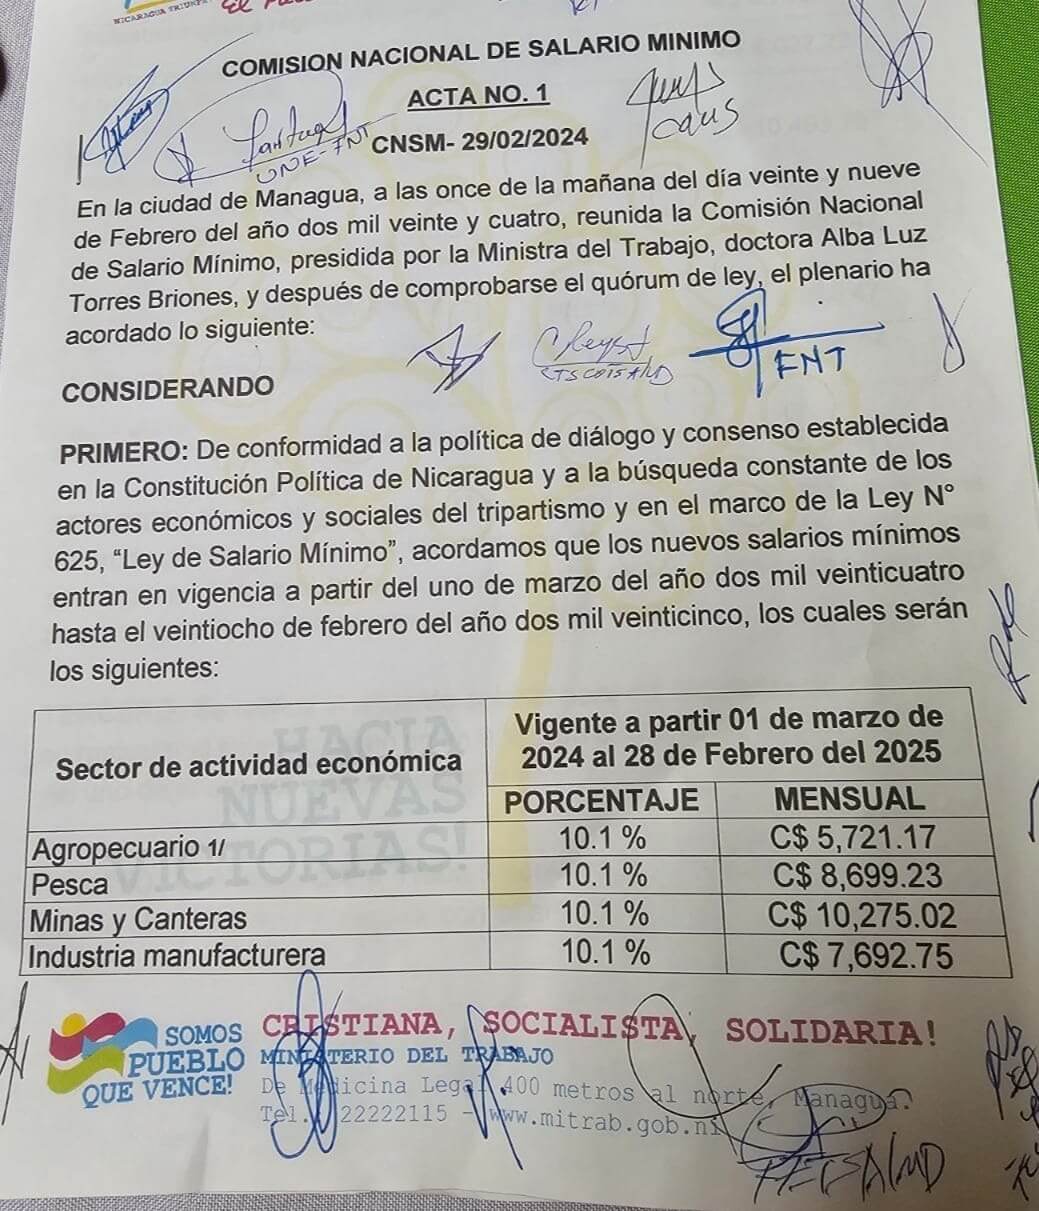 NICARAGUA TRIUNFA
COMISION NACIONAL DE SALARIO MINIMO
ACTA NO. 1
CNSM- 29/02/2024
UNE-FNT
En la ciudad de Managua, a las once de la mañana del día veinte y nueve
de Febrero del año dos mil veinte y cuatro, reunida la Comisión Nacional
de Salario Mínimo, presidida por la Ministra del Trabajo, doctora Alba Luz
Torres Briones, y después de comprobarse el quórum de ley, el plenario ha
acordado lo siguiente:
FNT
CONSIDERANDO
PRIMERO: De conformidad a la política de diálogo y consenso establecida
en la Constitución Política de Nicaragua y a la búsqueda constante de los
actores económicos y sociales del tripartismo y en el marco de la Ley N°
625, “Ley de Salario Mínimo”, acordamos que los nuevos salarios mínimos
entran en vigencia a partir del uno de marzo del año dos mil veinticuatro
hasta el veintiocho de febrero del año dos mil veinticinco, los cuales serán
los siguientes:
HACIA
NUEVAS
VICTORIAS!
Sector de actividad económica
Vigente a partir 01 de marzo de
2024 al 28 de Febrero del 2025
PORCENTAJE MENSUAL
Agropecuario 1/ 10.1 % C$ 5,721.17
Pesca 10.1 % C$ 8,699.23
Minas y Canteras 10.1 % C$ 10,275.02
Industria manufacturera 10.1 % C$ 7,692.75
SOMOS
PUEBLO
QUE VENCE!
CRISTIANA, SOCIALISTA, SOLIDARIA!
MINISTERIO DEL TRABAJO
De Medicina Legal 400 metros al norte, Managua.
Tel. 22222115 - www.mitrab.gob.ni